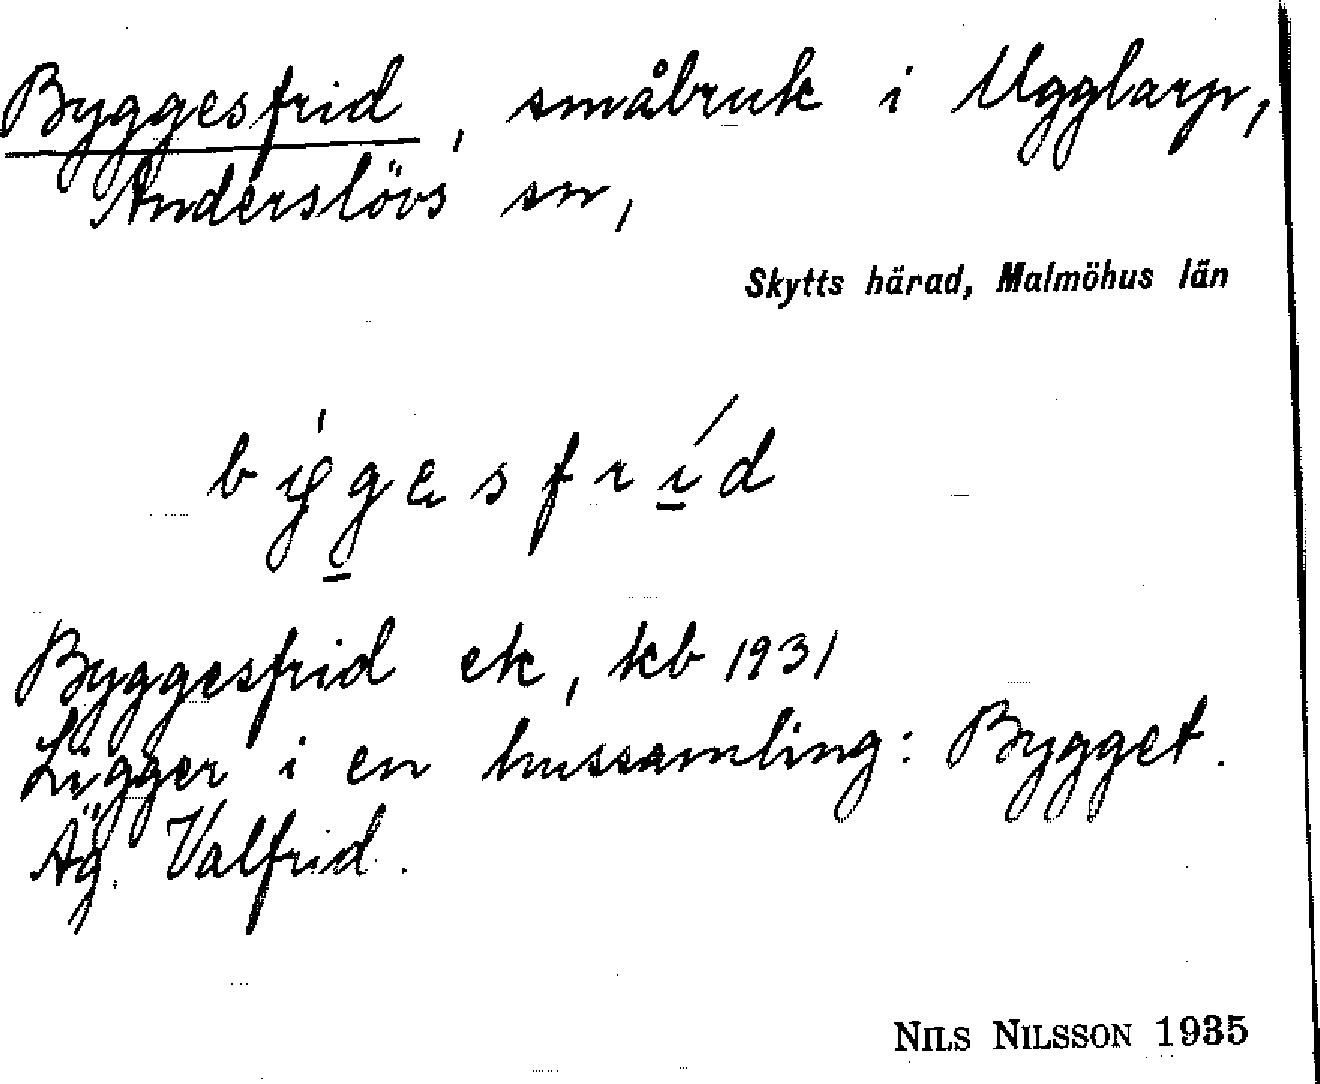 Byggesfrid, småbruk i Ugglarp,
Anderslövs sn,
Skytts härad, Malmöhus län
Byggesfrid ek, kb 1931
Ligger i en hussamling: Bygget.
Äg. Valfrid.
NILS NILSSON 1935